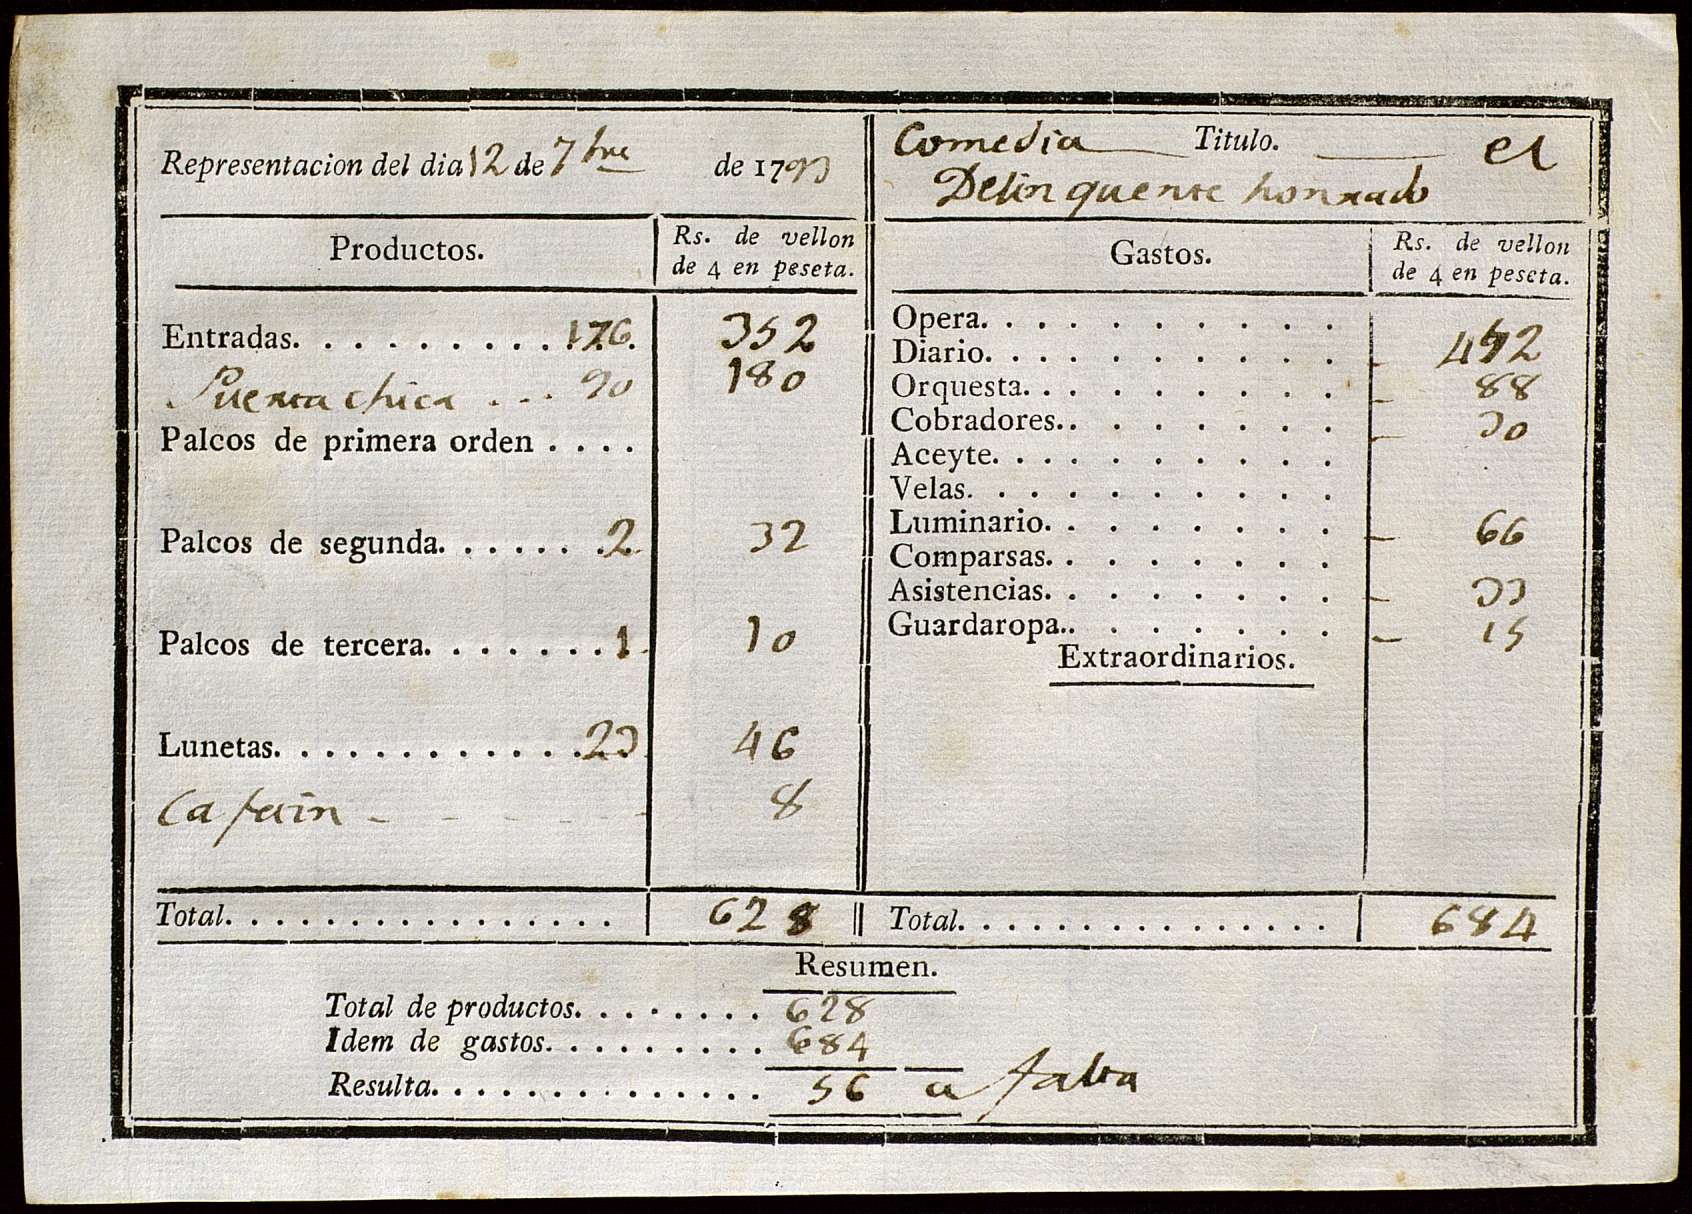 Representacion del dia 12 de 7bre de 1793
Comedia Titulo. el
Delinquente honrado
Productos. Rs. de vellon
de 4 en peseta.
Entradas. 176. 352
Puerta chica 90 180
Palcos de primera orden
Palcos de segunda. 2 32
Palcos de tercera. 1 10
Lunetas. 23 46
8
Total. 628
Gastos. Rs. de vellon
de 4 en peseta.
Opera.
Diario. 452
Orquesta. 88
Cobradores. 30
Aceyte.
Velas.
Luminario. 66
Comparsas.
Asistencias. 33
Guardaropa. 15
Extraordinarios.
Total. 684
Resumen.
Total de productos. 628
Idem de gastos. 684
Resulta. 56 a falta